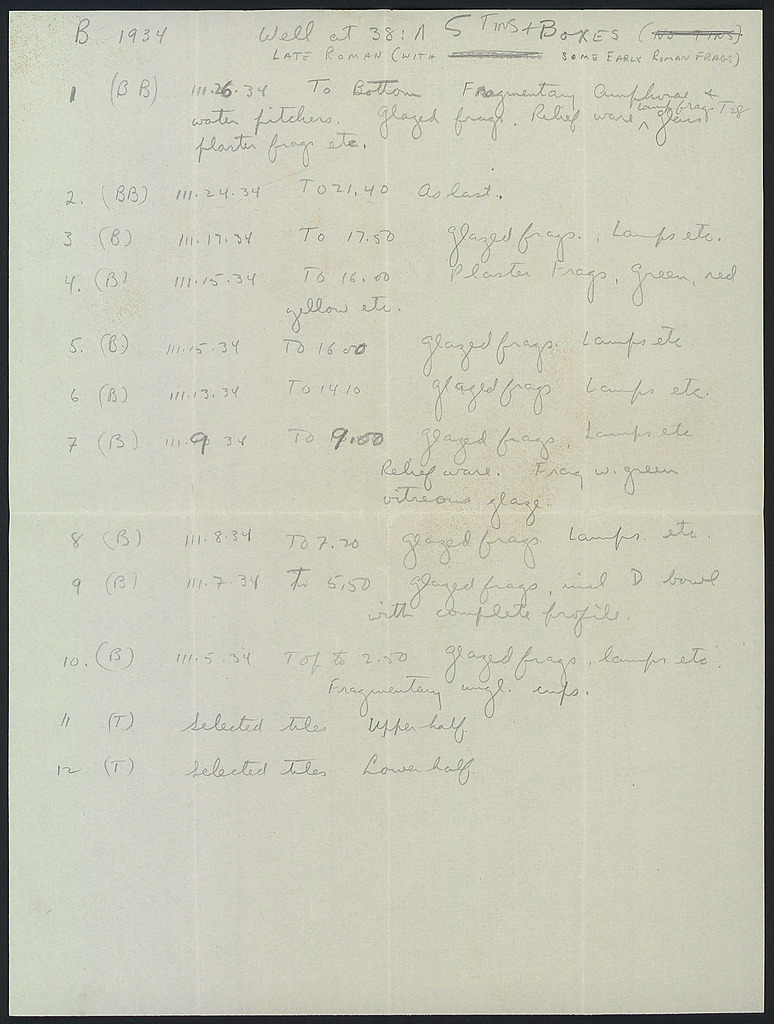 B 1934 Well at 38:Λ 5 Tins + Boxes (No Tins)
Late Roman (with some Early Roman frags)
1 (BB) 111.26.34 To Bottom Fragmentary Amphorae +
water pitchers. Glazed frags. Relief ware, lamp frags glass
plaster frags etc.
2. (BB) 111.24.34 To 21.40 As last.
3 (B) 111.17.34 To 17.50 Glazed frags., Lamps etc.
4. (B) 111.15.34 To 16.00 Plaster Frags, Green, red
yellow etc.
5. (B) 111.15.34 To 16.00 Glazed frags. Lamps etc
6 (B) 111.13.34 To 14.10 Glazed frags Lamps etc.
7 (B) 111.9.34 To 9.00 Glazed frags. Lamps etc
Relief ware. Frag w. green
vitreous glaze.
8 (B) 111.8.34 To 7.20 Glazed frags. Lamps. etc.
9 (B) 111.7.34 To 5.50 Glazed frags, incl D bowl
with complete profile.
10. (B) 111.5.34 Top to 2.50 Glazed frags, lamps etc.
Fragmentary ungl. cups.
11 (T) Selected tiles Upper half.
12 (T) Selected tiles Lower half.